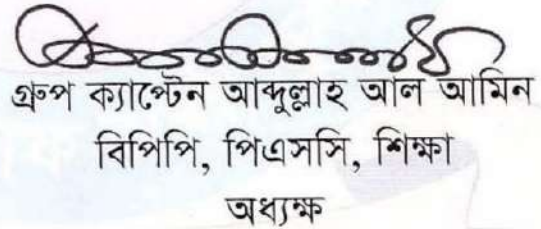 গ্রুপ ক্যাপ্টেন আব্দুল্লাহ আল আমিন
বিপিপি, পিএসসি, শিক্ষা
অধ্যক্ষ